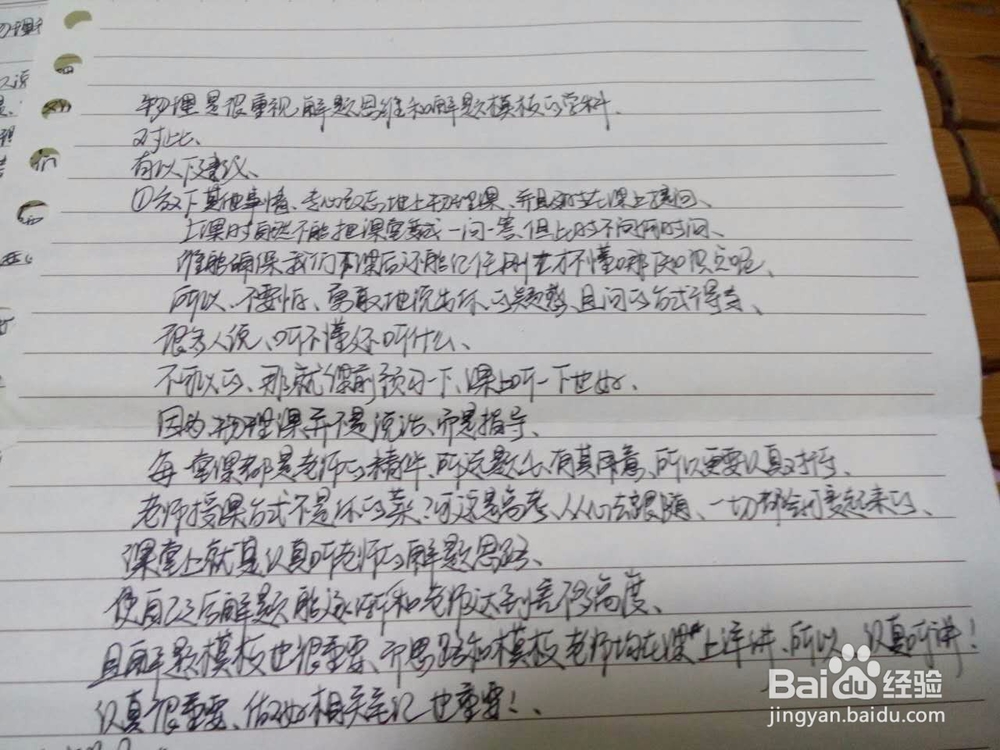 物理是很重视解题思维和解题模板的学科.
对此、
有以下建议、
①放下其他事情、专心致志地上物理课、并且对于在课上提问、
上课时自然不能把课堂变成一问一答、但此时不问何时问、
谁能确保我们下课后还能记住刚才不懂的那个知识点呢、
所以、不要怕、勇敢地说出你的疑惑、且问的方式得当、
很多人说、听不懂你听什么、
不可以的、那就课前预习一下、课上听一下也好.
因为、物理课并不是说话、而是指导、
每堂课都是老师的精件、所选题、有其用意、所以更要认真对待、
老师授课方式不是你的菜？可这是高考、从心去跟随、一切都会可爱起来的、
课堂上就是认真听老师的解题思路、
使自己之后解题能逐渐和老师达到高度、
且解题模板也很重要、而思路和模板老师均在课上详讲、所以、认真听讲！
认真很重要、做好相关笔记也重要！、
Baidu经验
jingyan.baidu.com